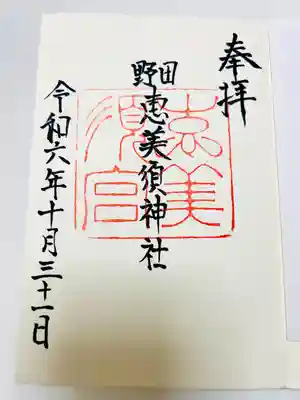 奉拝
野田恵美須神社
恵美須宮
令和六年十月三十一日